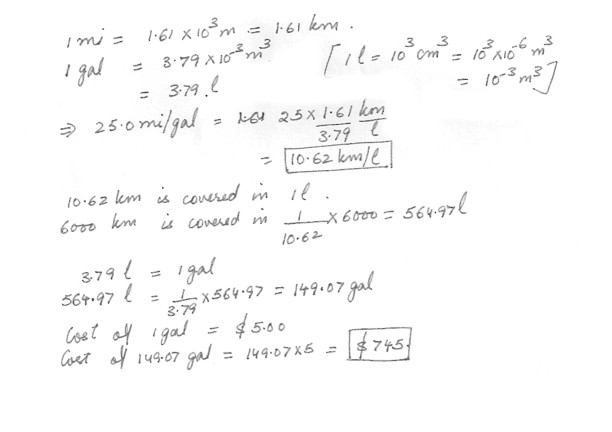 1 mi = 1.61 x 10³ m = 1.61 km.
1 gal = 3.79 x 10⁻³ m³ [1 l = 10³ cm³ = 10³ x 10⁻⁶ m³
= 3.79 l = 10⁻³ m³]
⇒ 25.0 mi/gal = 25 x 1.61 km / 3.79 l
= 10.62 km/l
10.62 km is covered in 1 l.
6000 km is covered in 1/10.62 x 6000 = 564.97 l
3.79 l = 1 gal
564.97 l = 1/3.79 x 564.97 = 149.07 gal
Cost of 1 gal = $5.00
Cost of 149.07 gal = 149.07 x 5 = $745